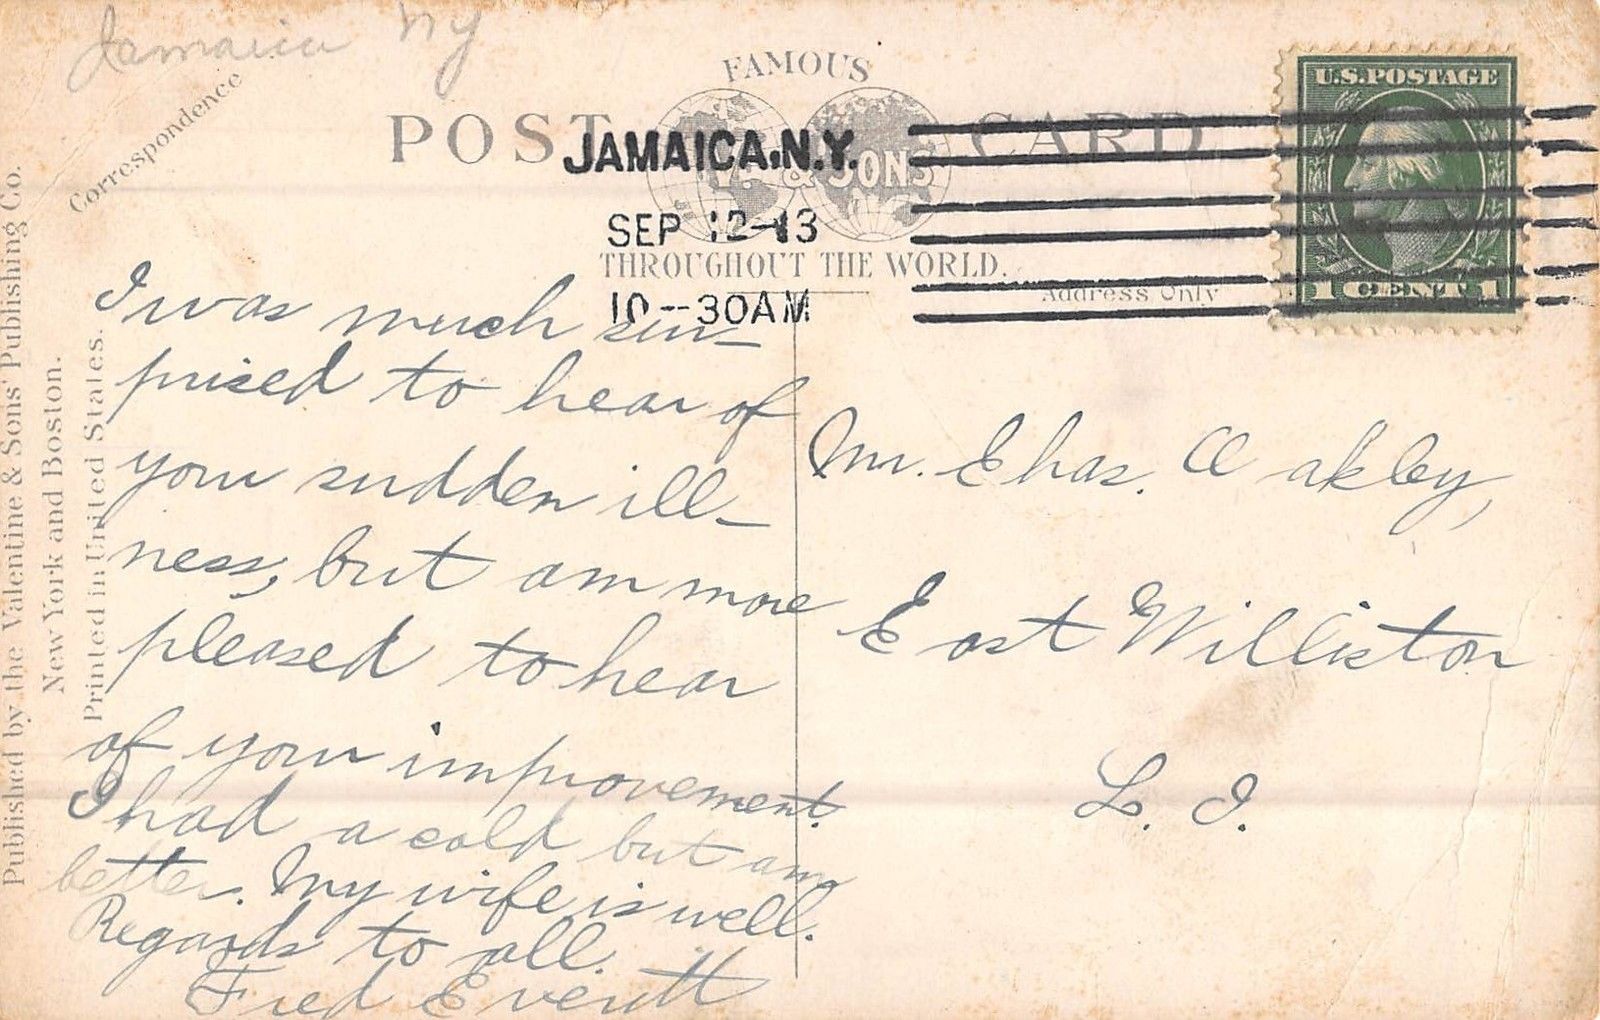 Jamaica NY
Correspondence
FAMOUS
POST CARD
& SONS
THROUGHOUT THE WORLD.
JAMAICA, N.Y.
SEP 12-13
10--30AM
Address Only
U.S. POSTAGE
1 CENT 1
Published by the Valentine & Sons' Publishing Co.
New York and Boston.
Printed in United States.
I was much sur-
prised to hear of
your sudden ill-
ness, but am more
pleased to hear
of your improvement.
I had a cold but am
better. My wife is well.
Regards to all.
Fred Everitt
Mr. Chas. Oakley,
East Williston
L. I.